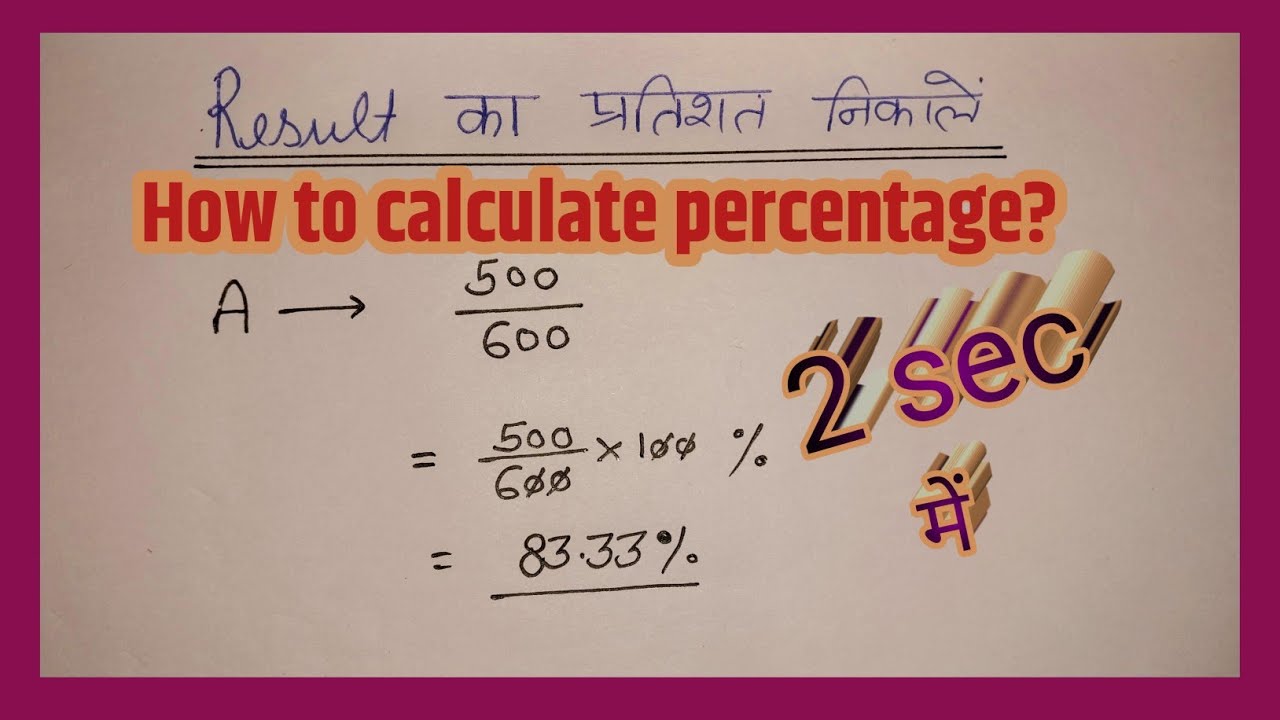 Result का प्रतिशत निकालें
How to calculate percentage?
A → 500/600
2 sec
= 500/600 × 100 %
में
= 83.33%